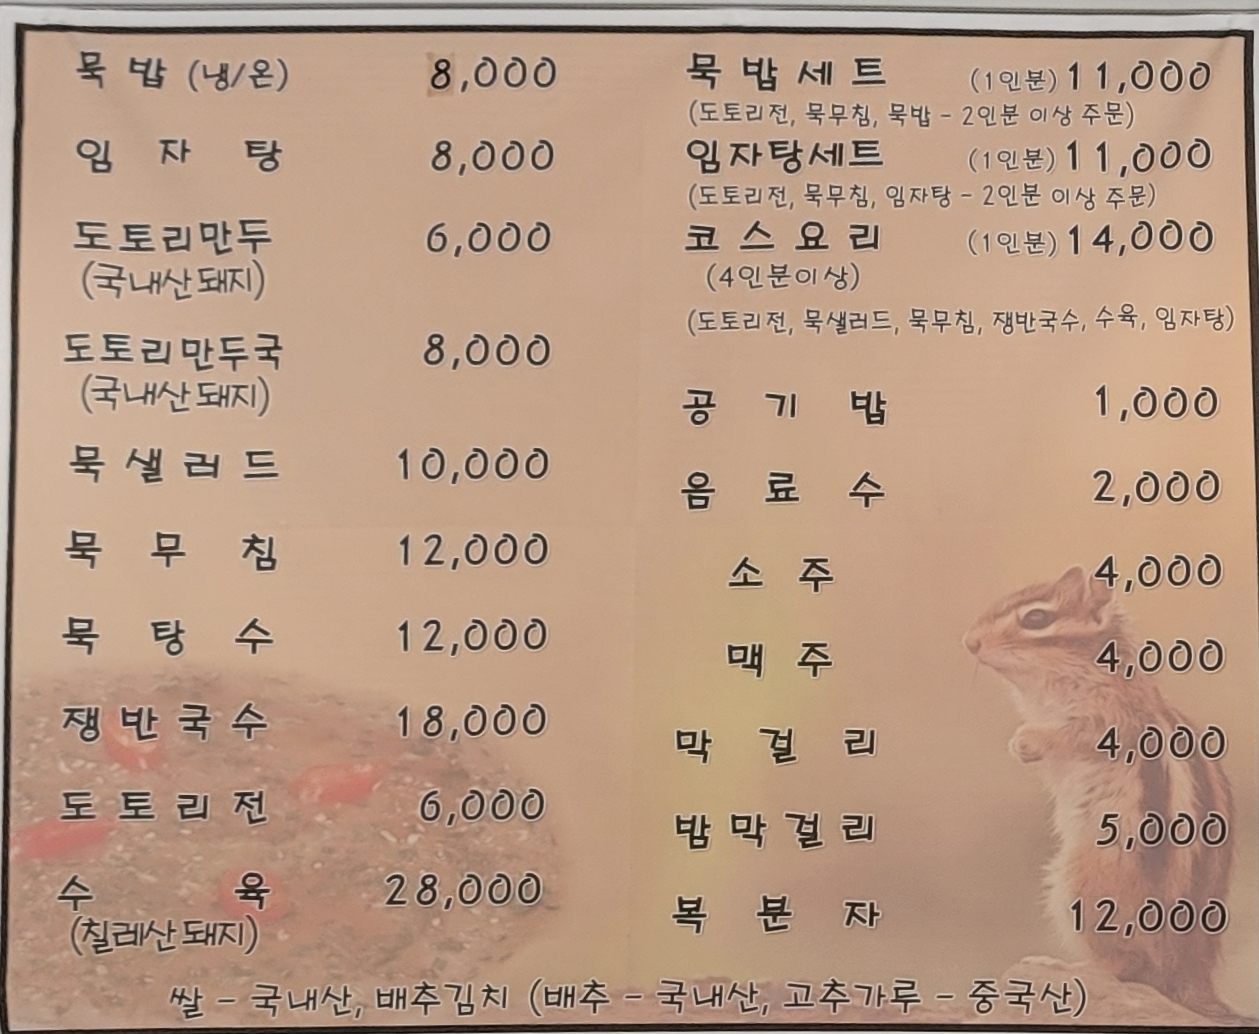 묵밥 (냉/온) 8,000
임자탕 8,000
도토리만두 6,000
(국내산돼지)
도토리만두국 8,000
(국내산돼지)
묵샐러드 10,000
묵무침 12,000
묵탕수 12,000
쟁반국수 18,000
도토리전 6,000
수육 28,000
(칠레산돼지)
묵밥세트 (1인분) 11,000
(도토리전, 묵무침, 묵밥 - 2인분 이상 주문)
임자탕세트 (1인분) 11,000
(도토리전, 묵무침, 임자탕 - 2인분 이상 주문)
코스요리 (1인분) 14,000
(4인분이상)
(도토리전, 묵샐러드, 묵무침, 쟁반국수, 수육, 임자탕)
공기밥 1,000
음료수 2,000
소주 4,000
맥주 4,000
막걸리 4,000
밤막걸리 5,000
복분자 12,000
쌀 - 국내산, 배추김치 (배추 - 국내산, 고추가루 - 중국산)